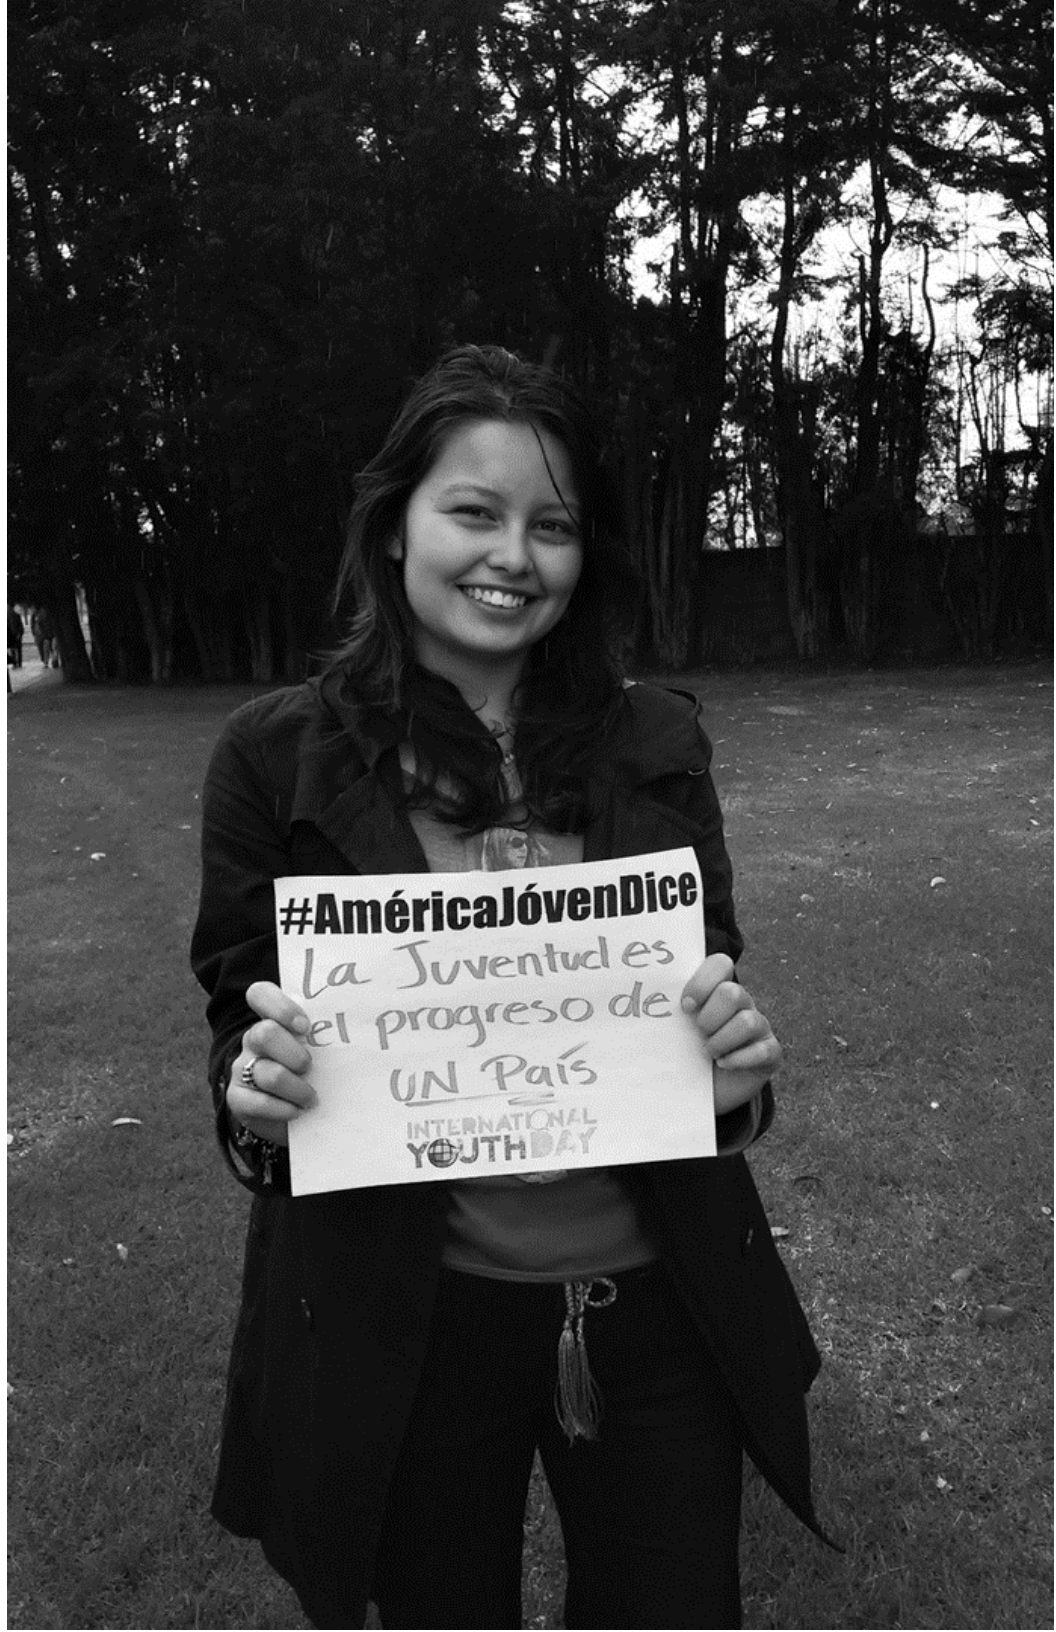 #AméricaJóvenDice
La Juventud es
el progreso de
UN País
INTERNATIONAL
YOUTH DAY